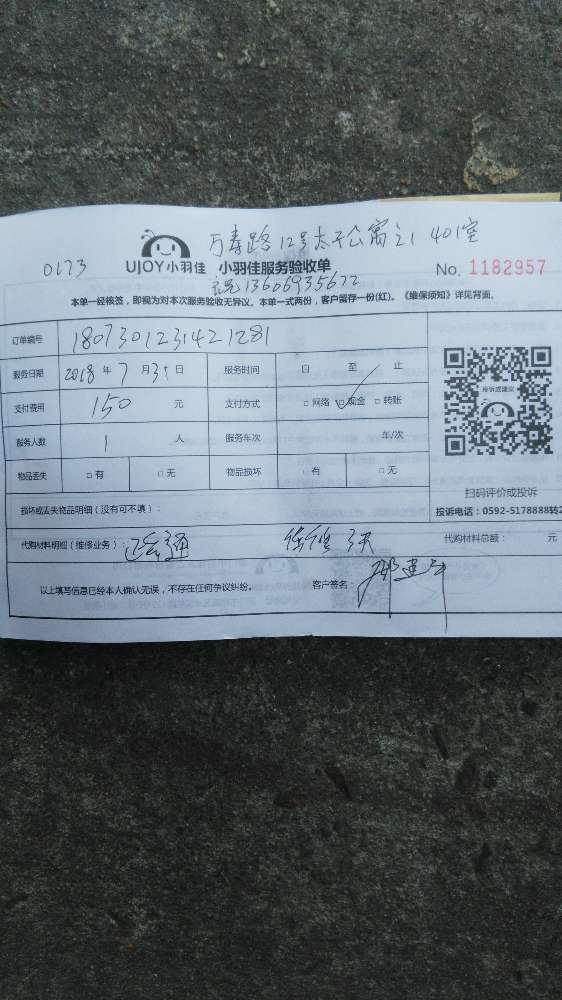 万寿路12号太平公寓之1 401室
0173 UJOY小羽佳 小羽佳服务验收单 No. 1182957
13606935622
本单一经核签，即视为对本次服务验收无异议。本单一式两份，客户留存一份(红)。《维保须知》详见背面。
订单编号 1807301231421281
服务日期 2018年7月31日 服务时间 自 至 止
支付费用 150 元 支付方式 □网络 □现金 □转账
服务人数 1 人 服务车次 年/次
物品丢失 □有 □无 物品损坏 □有 □无
扫码评价或投诉
损坏或丢失物品明细（没有可不填）：
投诉电话：0592-5178888转2
代购材料明细（维修业务）： 代购材料总额： 元
以上填写信息已经本人确认无误，不存在任何争议纠纷。 客户签名：